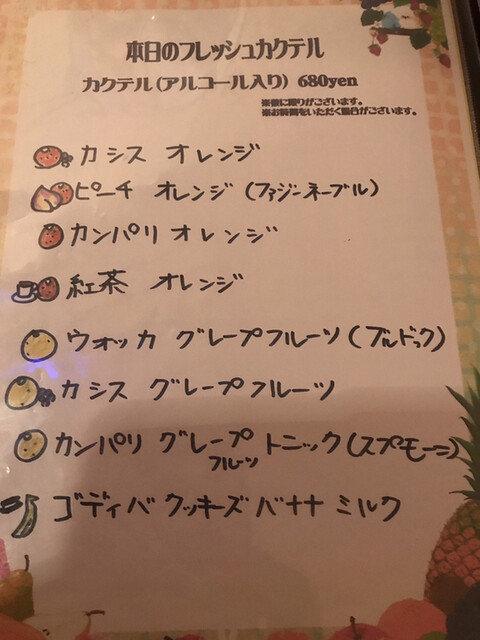 本日のフレッシュカクテル
カクテル(アルコール入り) 680yen
※数に限りがございます。
※お時間をいただく場合がございます。
カシス オレンジ
ピーチ オレンジ (ファジーネーブル)
カンパリ オレンジ
紅茶 オレンジ
ウォッカ グレープフルーツ (ブルドック)
カシス グレープフルーツ
カンパリ グレープフルーツ トニック (スプモーニ)
ゴディバ クッキーズ バナナ ミルク